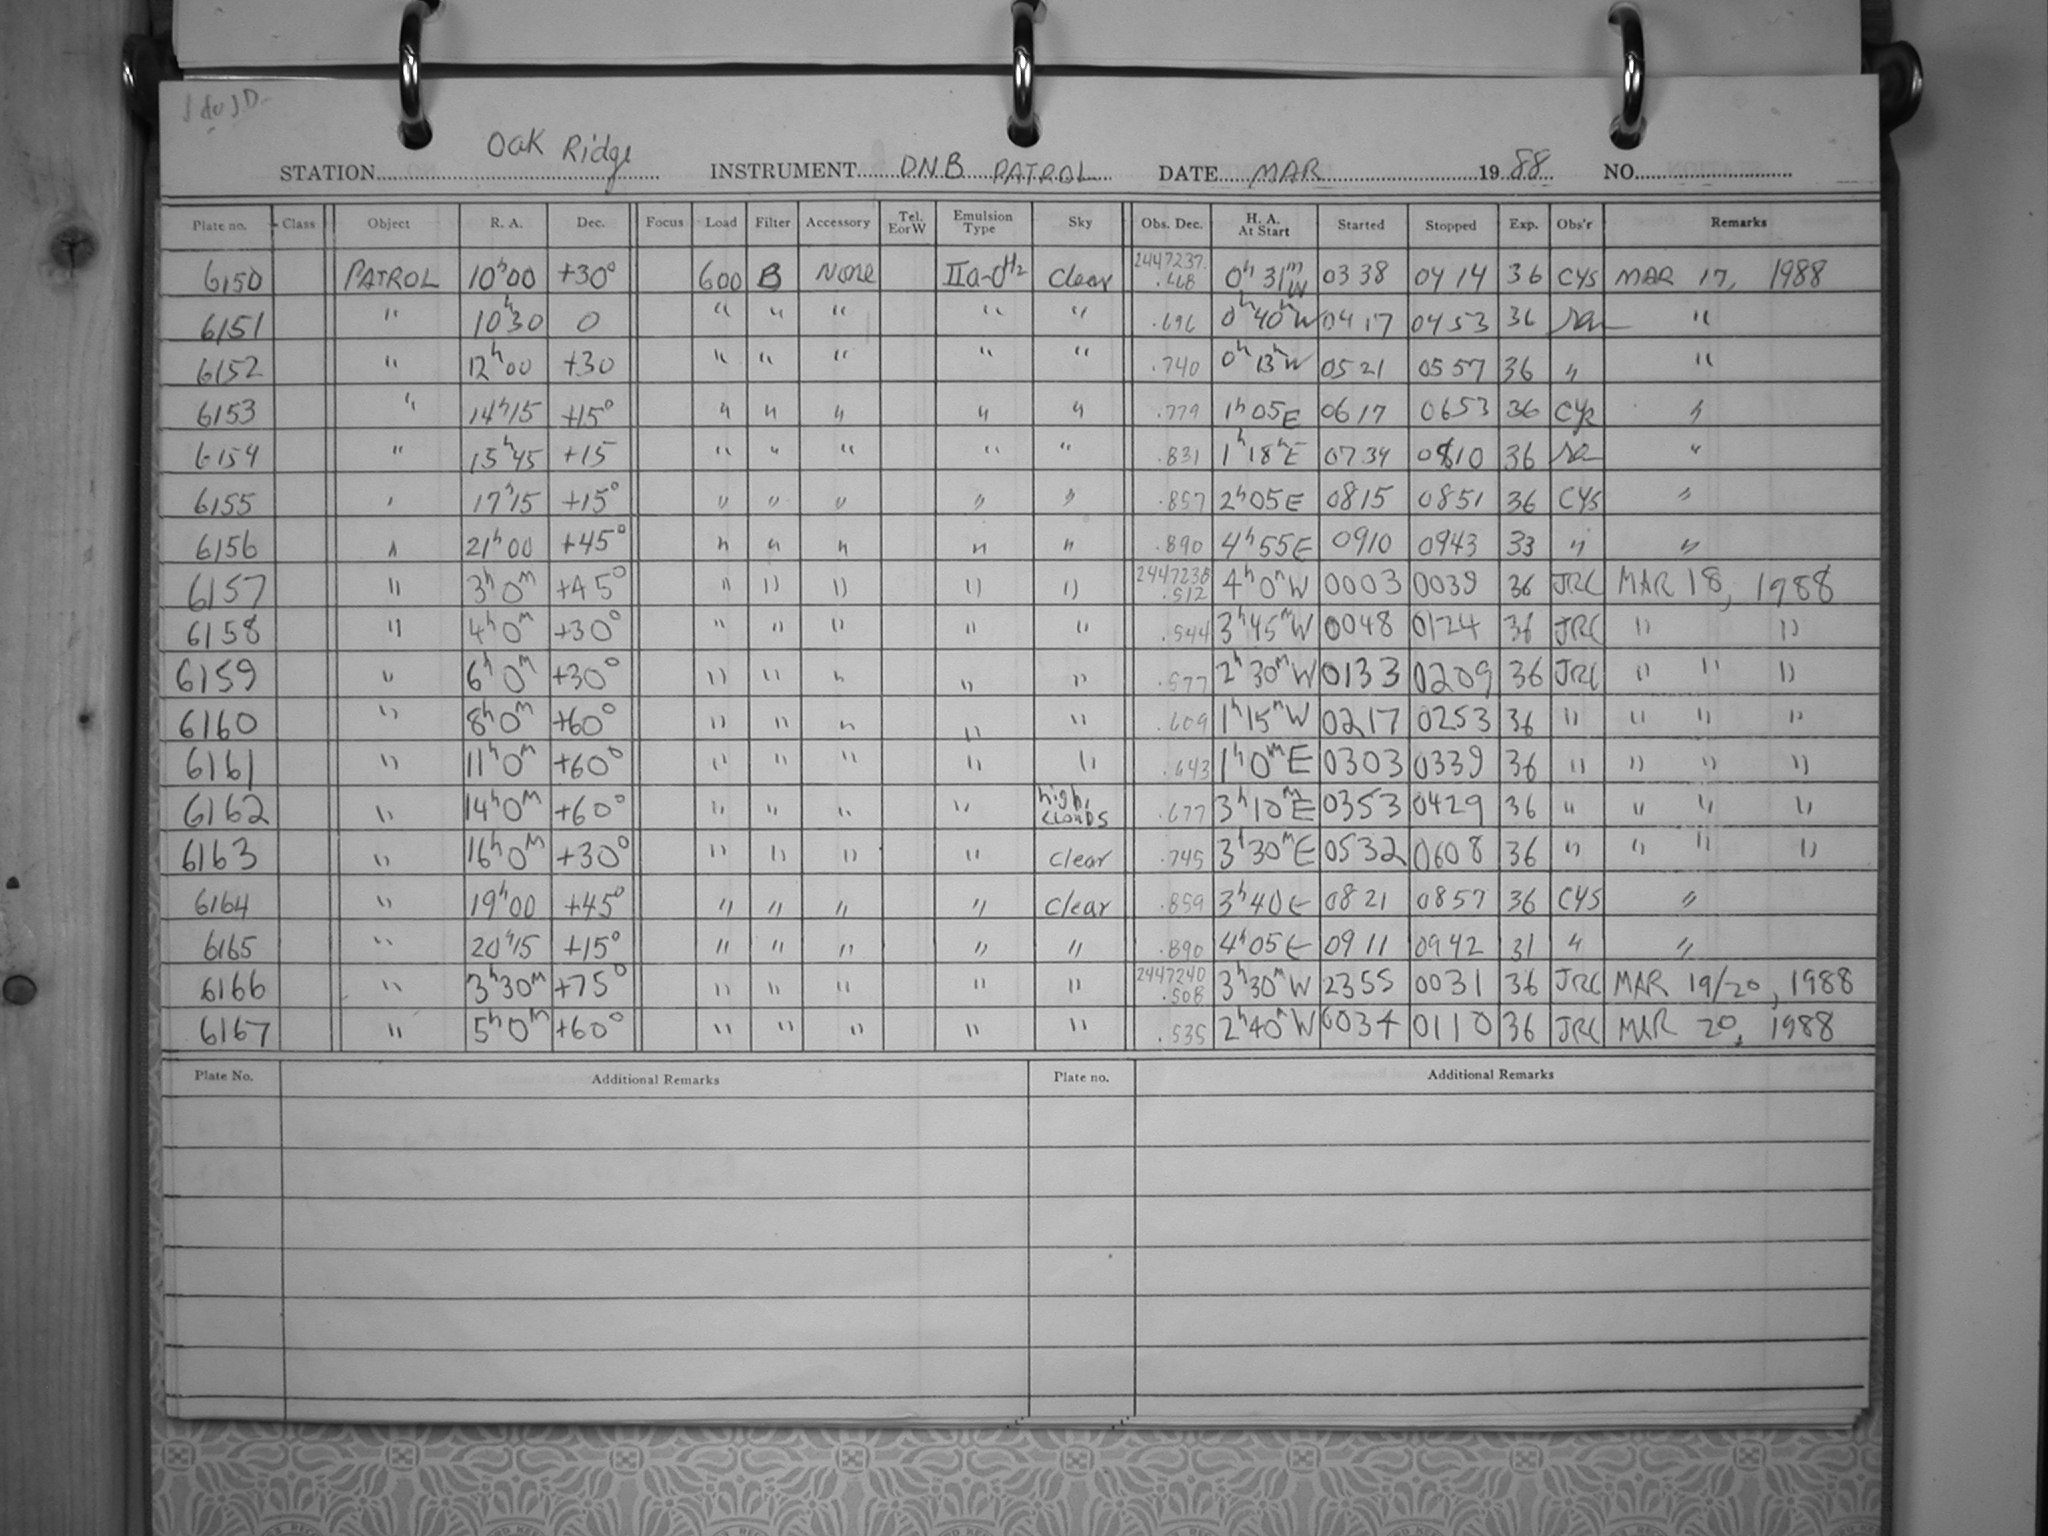 STATION Oak Ridge INSTRUMENT DNB PATROL DATE MAR 1988 NO.
Plate no. Class Object R. A. Dec. Focus Load Filter Accessory Tel. E or W Emulsion Type Sky Obs. Dec. H. A. At Start Started Stopped Exp. Obs'r Remarks
6150 PATROL 10h00 +30° 600 B None IIa-O H2 Clear 2447237. .668 0h 31m W 0338 0414 36 CYS MAR 17, 1988
6151 " 10h30 0 " " " " " .696 0h40mW 0417 0453 36 "
6152 " 12h00 +30 " " " " " .740 0h13mW 0521 0557 36 " "
6153 " 14h15 +15° " " " " " .779 1h05E 0617 0653 36 CYS "
6154 " 15h45 +15 " " " " " .831 1h18mE 0734 0810 36 "
6155 " 17h15 +15° " " " " " .857 2h05E 0815 0851 36 CYS "
6156 " 21h00 +45° " " " " " .890 4h55E 0910 0943 33 " "
6157 " 3h0m +45° " " " " " 2447238 .512 4h0mW 0003 0039 36 JRC MAR 18, 1988
6158 " 4h0m +30° " " " " " .544 3h45mW 0048 0124 36 JRC " "
6159 " 6h0m +30° " " " " " .577 2h30mW 0133 0209 36 JRC " " "
6160 " 8h0m +60° " " " " " .609 1h15mW 0217 0253 36 " " " "
6161 " 11h0m +60° " " " " " .643 1h0mE 0303 0339 36 " " " "
6162 " 14h0m +60° " " " " high clouds .677 3h10mE 0353 0429 36 " " " "
6163 " 16h0m +30° " " " " clear .745 3h30mE 0532 0608 36 " " " "
6164 " 19h00 +45° " " " " Clear .859 3h40E 0821 0857 36 CYS "
6165 " 20h15 +15° " " " " " .890 4h05E 0911 0942 31 " "
6166 " 3h30m +75° " " " " " 2447240 .508 3h30mW 2355 0031 36 JRC MAR 19/20, 1988
6167 " 5h0m +60° " " " " " .535 2h40mW 0034 0110 36 JRC MAR 20, 1988
Plate No. Additional Remarks Plate no. Additional Remarks